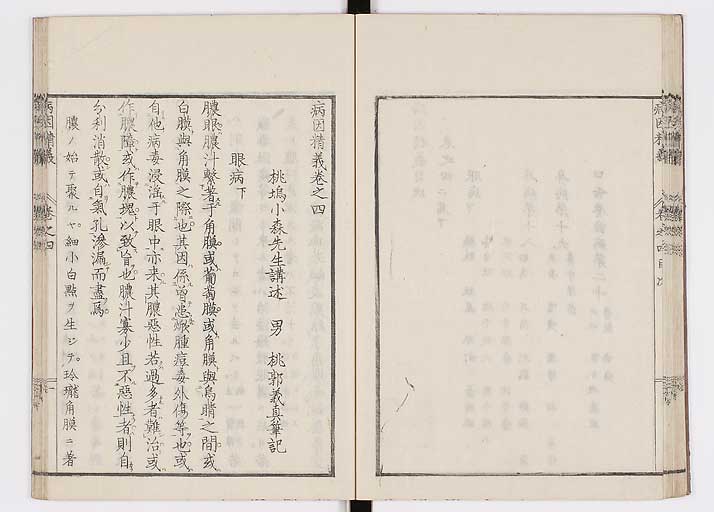 病因精義卷之四
桃塢小森先生講述　男　桃郭義真筆記
眼病下
膿眼膿汁繫著于角膜或葡萄膜或角膜與烏睛之間或
白膜與角膜之際也其因係嘗患焮腫痘毒外傷等也或
自他病毒浸淫于眼中亦来其膿惡性若過多者難治或
作膿障或作膿塊以致盲也膿汁寡少且不惡性者則自
分利消散或自氣孔滲漏而盡焉
膿ノ始テ聚ルヤ細小白點ヲ生ジテ玲瓏角膜ニ著
病因精義
卷之四
病因精義
卷之四目次